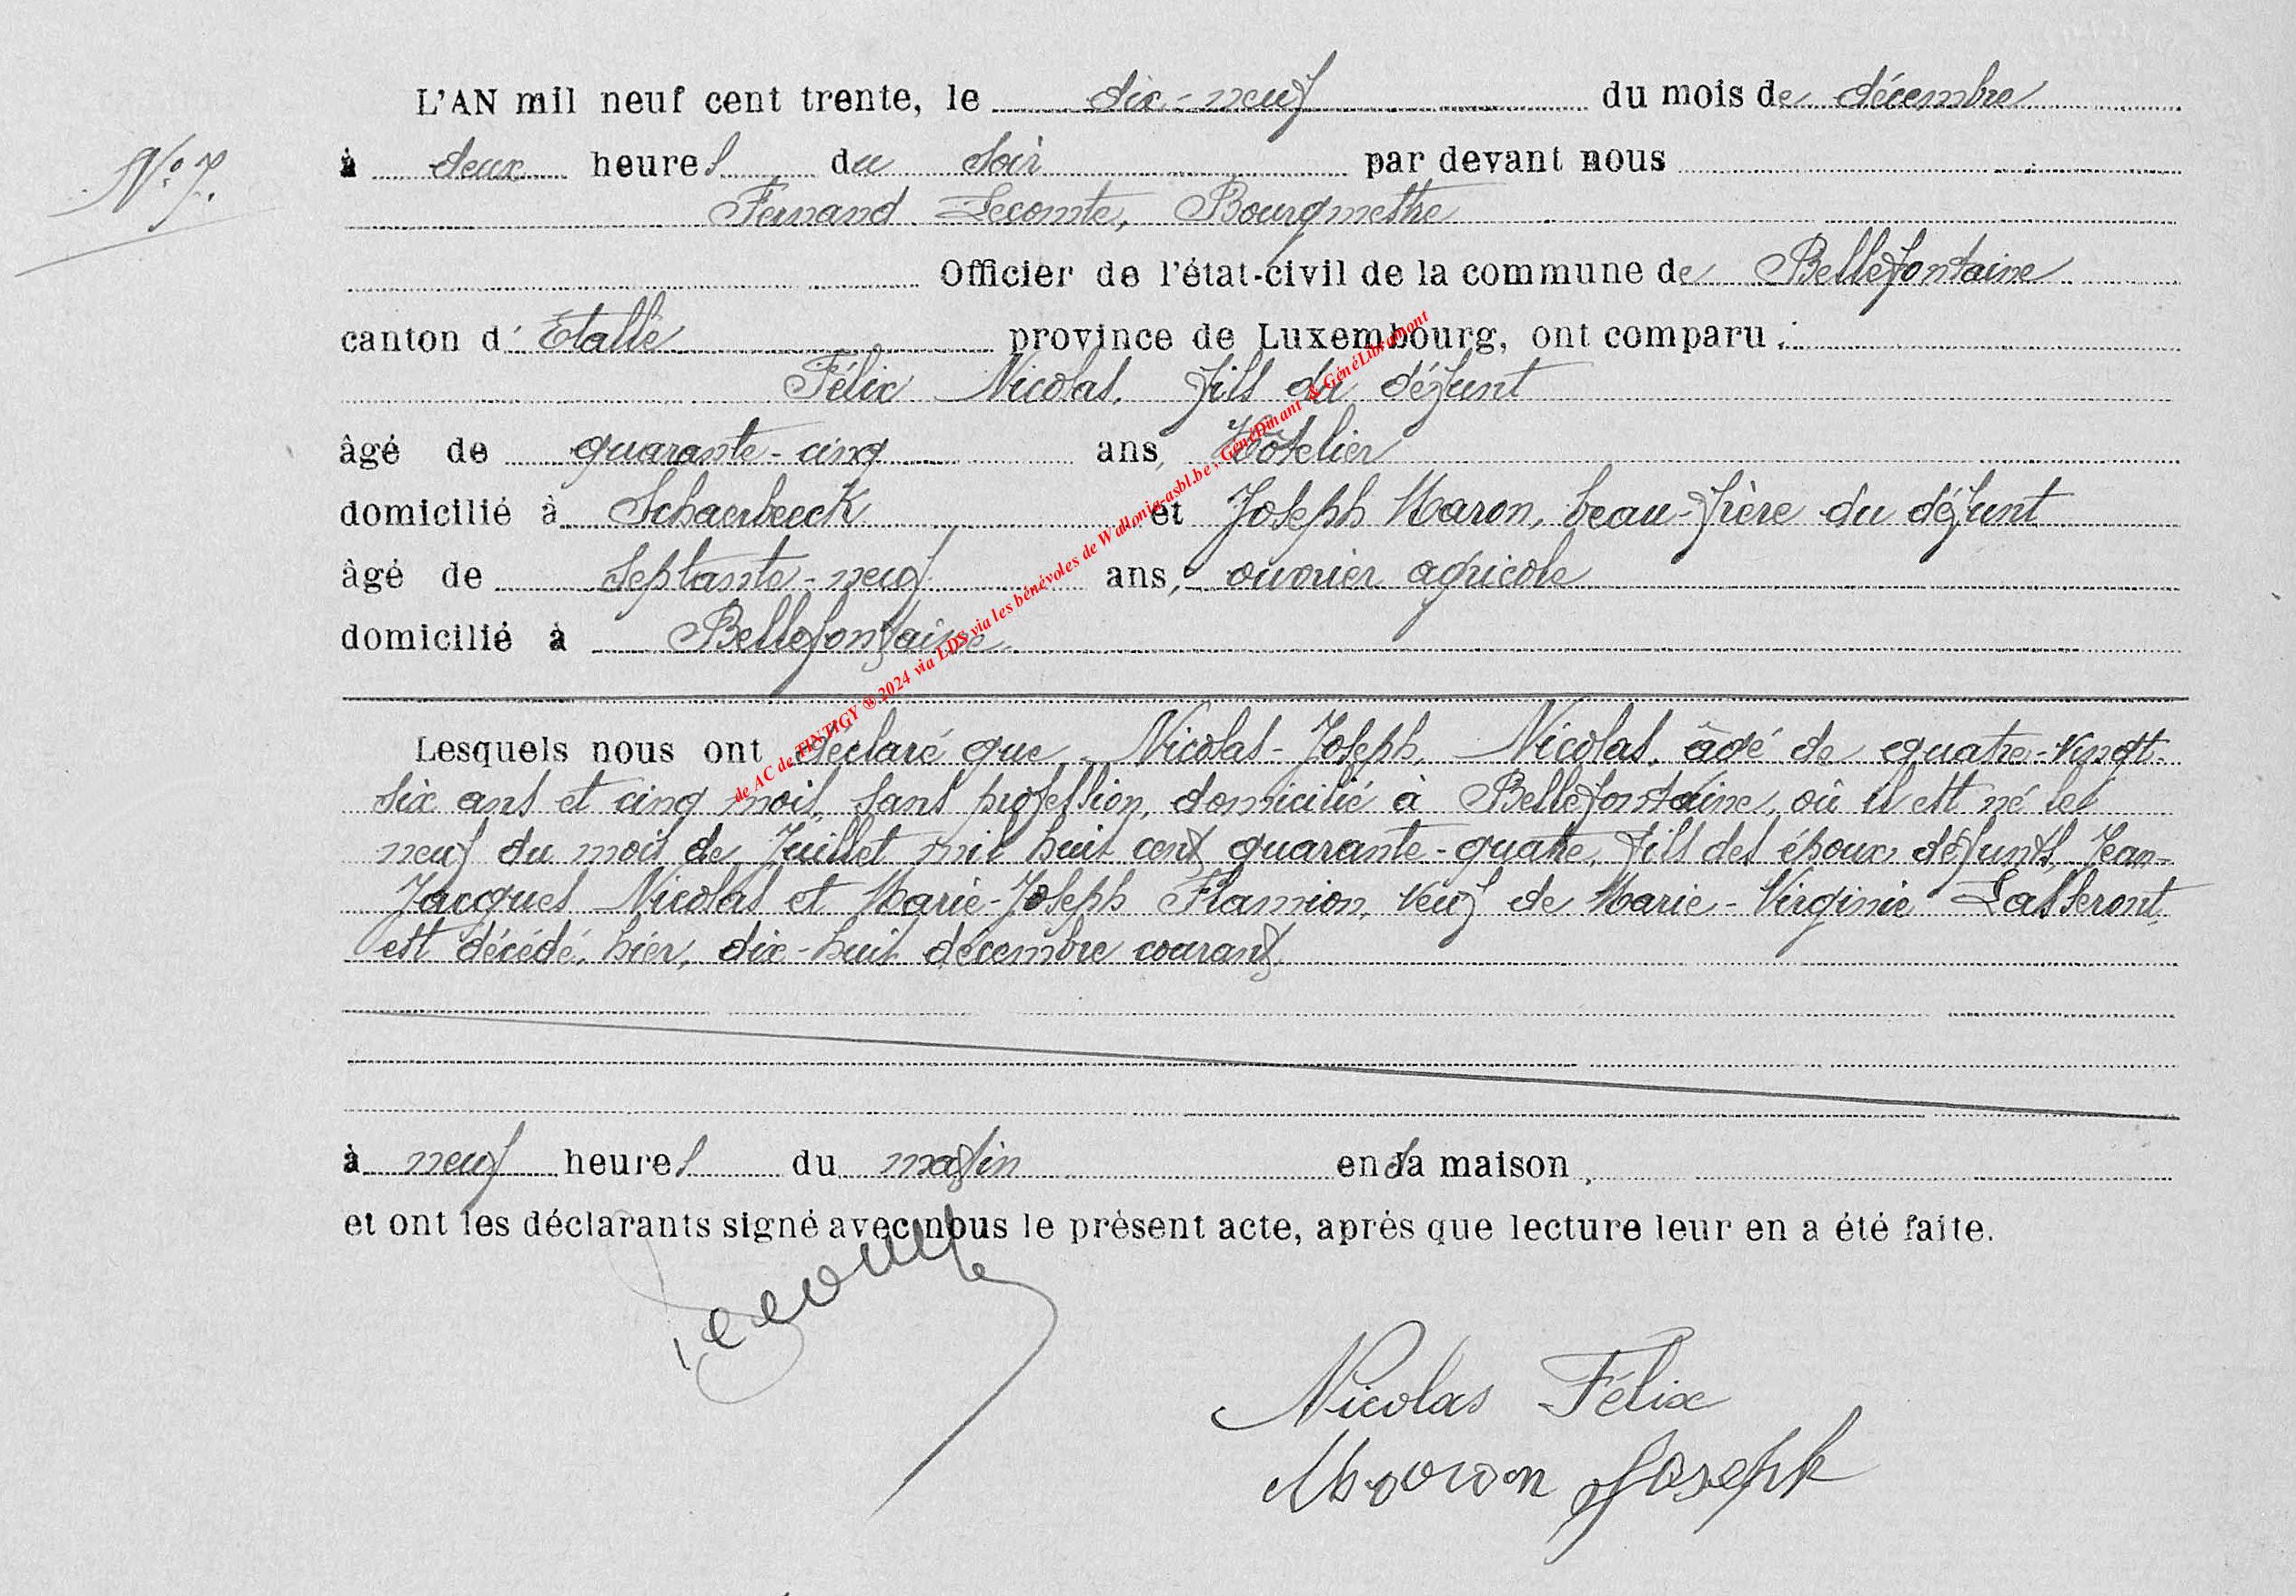 L'AN mil neuf cent trente, le dix-neuf du mois de décembre
N° 7.
à deux heures du soir par devant nous
Fernand Lecomte, Bourgmestre
Officier de l'état-civil de la commune de Bellefontaine
canton d'Etalle province de Luxembourg, ont comparu :
Félix Nicolas, fils du défunt
âgé de quarante-cinq ans, Hôtelier
domicilié à Schaerbeeck et Joseph Maron, beau-frère du défunt
âgé de septante-neuf ans, ouvrier agricole
domicilié à Bellefontaine
de AC de TINTIGY @ 2024 via LDS via les bénévoles de Wallonia-asbl.be, GénéDinant & GénéLibramont
Lesquels nous ont déclaré que Nicolas-Joseph, Nicolas, âgé de quatre-vingt-
six ans et cinq mois, sans profession, domicilié à Bellefontaine, où il est né le
neuf du mois de Juillet mil huit cent quarante-quatre, fils des époux défunts, Jean-
Jacques Nicolas et Marie-Joseph Flamion, veuf de Marie-Virginie Lasseront,
est décédé, hier, dix-huit décembre courant,
à neuf heures du matin en sa maison,
et ont les déclarants signé avec nous le présent acte, après que lecture leur en a été faite.
Lecomte
Nicolas Félix
Maron Joseph